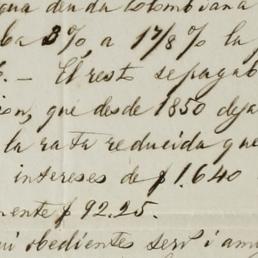 gua deuda Colombiana
ba 3%, a 1 7/8 % la
. — El resto se pagab
ion, que desde 1850 deja
la rata reducida que
intereses de $ 1.640
mente $ 92.25.
ui obediente serv i am